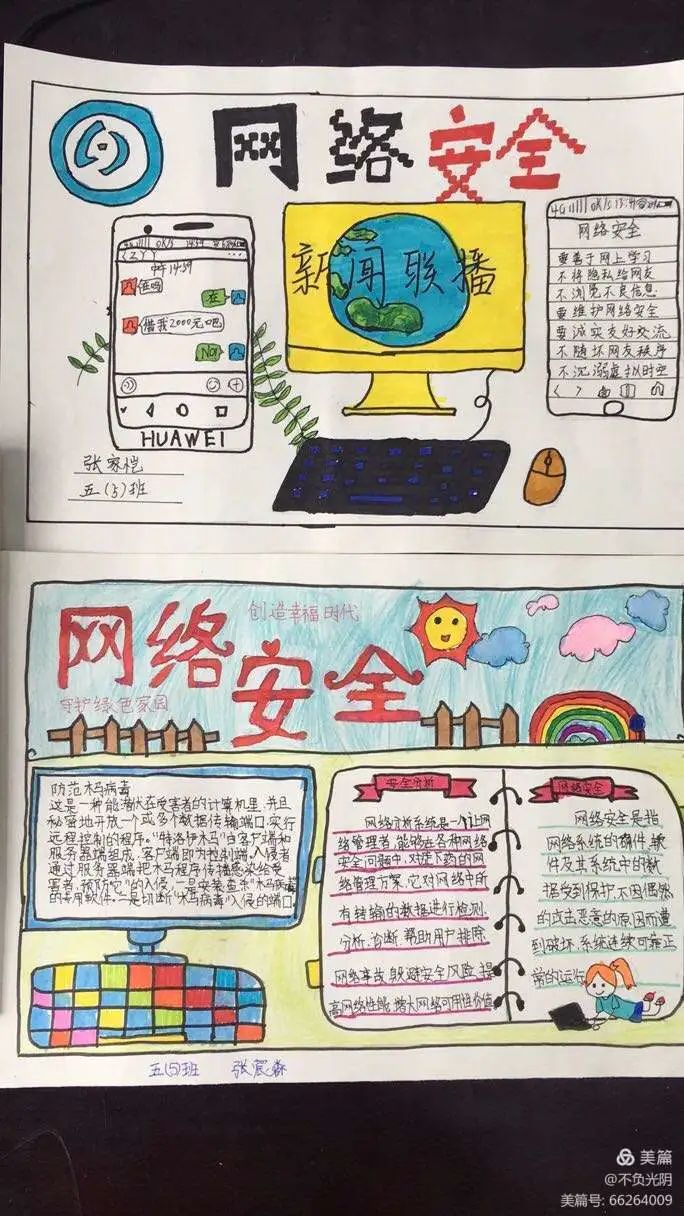 网络安全
中午14:59
在吗
在
借我2000元吧
NO!
HUAWEI
张家恺
五(5)班
新闻联播
网络安全
要善于网上学习
不将隐私给网友
不浏览不良信息
要维护网络安全
要诚实友好交流
不随坏网友秩序
不沉溺虚拟时空
网络安全
创造幸福时代
守护绿色家园
防范木马病毒
这是一种能潜伏在受害者的计算机里,并且
秘密地开放一个或多个数据传输端口,实行
远程控制的程序。"特洛伊木马"由客户端和
服务器端组成,客户端即为控制端,入侵者
通过服务器端把木马程序传播感染给受
害者,预防它"的入侵,一是安装查杀"木马病毒
的专用软件,二是切断"木马病毒"入侵的端口
安全分析
网络分析系统是一个让网
络管理者,能够在各种网络
安全问题中,对症下药的网
络管理方案,它对网络中所
有转输的数据进行检测.
分析.诊断.帮助用户排除
网络事故,躲避安全风险,提
高网络性能,增大网络可用性价值
网络安全
网络安全是指
网络系统的硬件,软
件及其系统中的数
据受到保护,不因偶然
的攻击恶意的原因而遭
到破坏,系统连续可靠正
常的运行
五(5)班 张宸森
美篇
@不负光阴
美篇号: 66264009